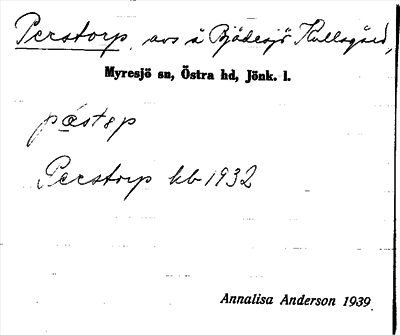 Perstorp, avs å Bjädesjö Kullagård,
Myresjö sn, Östra hd, Jönk. l.
pæstɑp
Perstorp kb 1932
Annalisa Anderson 1939